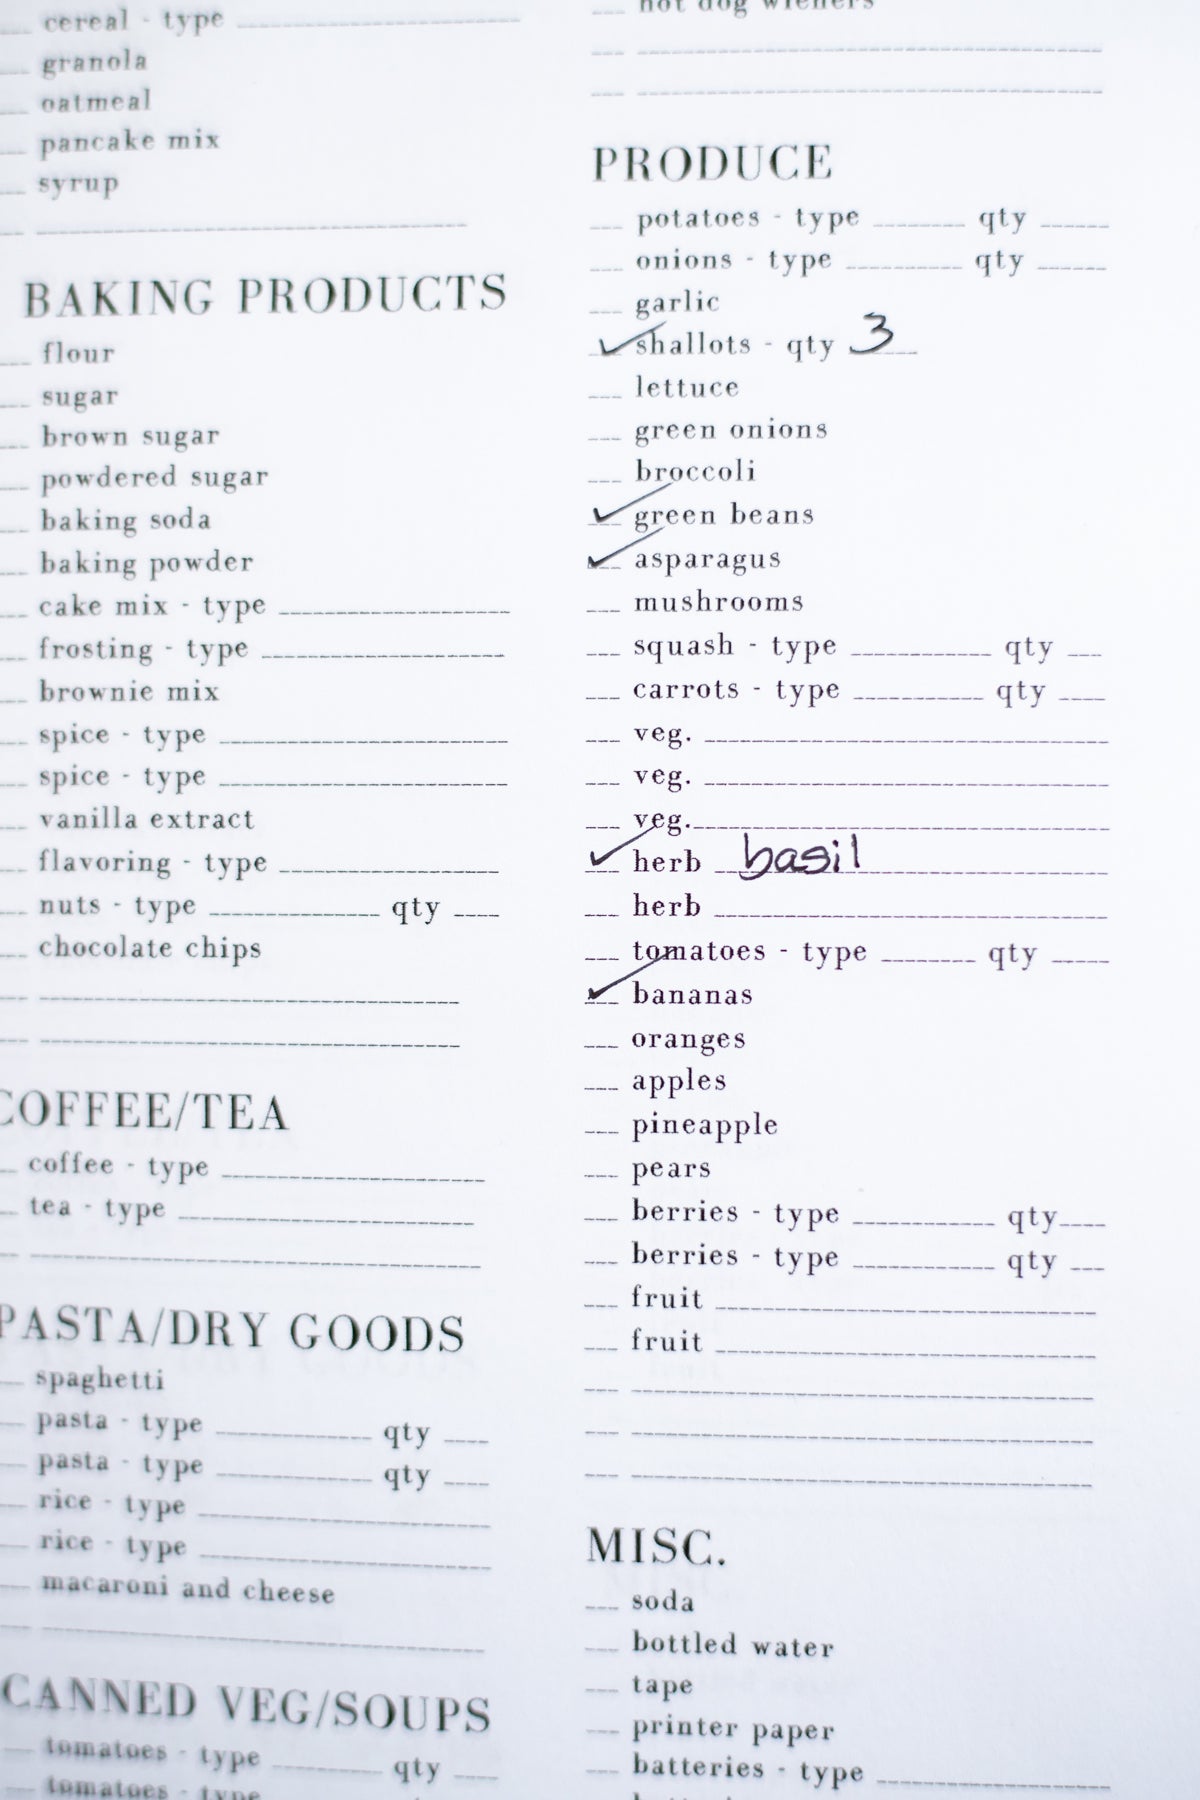 cereal - type
granola
oatmeal
pancake mix
syrup
BAKING PRODUCTS
flour
sugar
brown sugar
powdered sugar
baking soda
baking powder
cake mix - type
frosting - type
brownie mix
spice - type
spice - type
vanilla extract
flavoring - type
nuts - type qty
chocolate chips
COFFEE/TEA
coffee - type
tea - type
PASTA/DRY GOODS
spaghetti
pasta - type qty
pasta - type qty
rice - type
rice - type
macaroni and cheese
CANNED VEG/SOUPS
tomatoes - type qty
tomatoes - type
hot dog wieners
PRODUCE
potatoes - type qty
onions - type qty
garlic
✓ shallots - qty 3
lettuce
green onions
broccoli
✓ green beans
✓ asparagus
mushrooms
squash - type qty
carrots - type qty
veg.
veg.
veg.
✓ herb basil
herb
tomatoes - type qty
✓ bananas
oranges
apples
pineapple
pears
berries - type qty
berries - type qty
fruit
fruit
MISC.
soda
bottled water
tape
printer paper
batteries - type